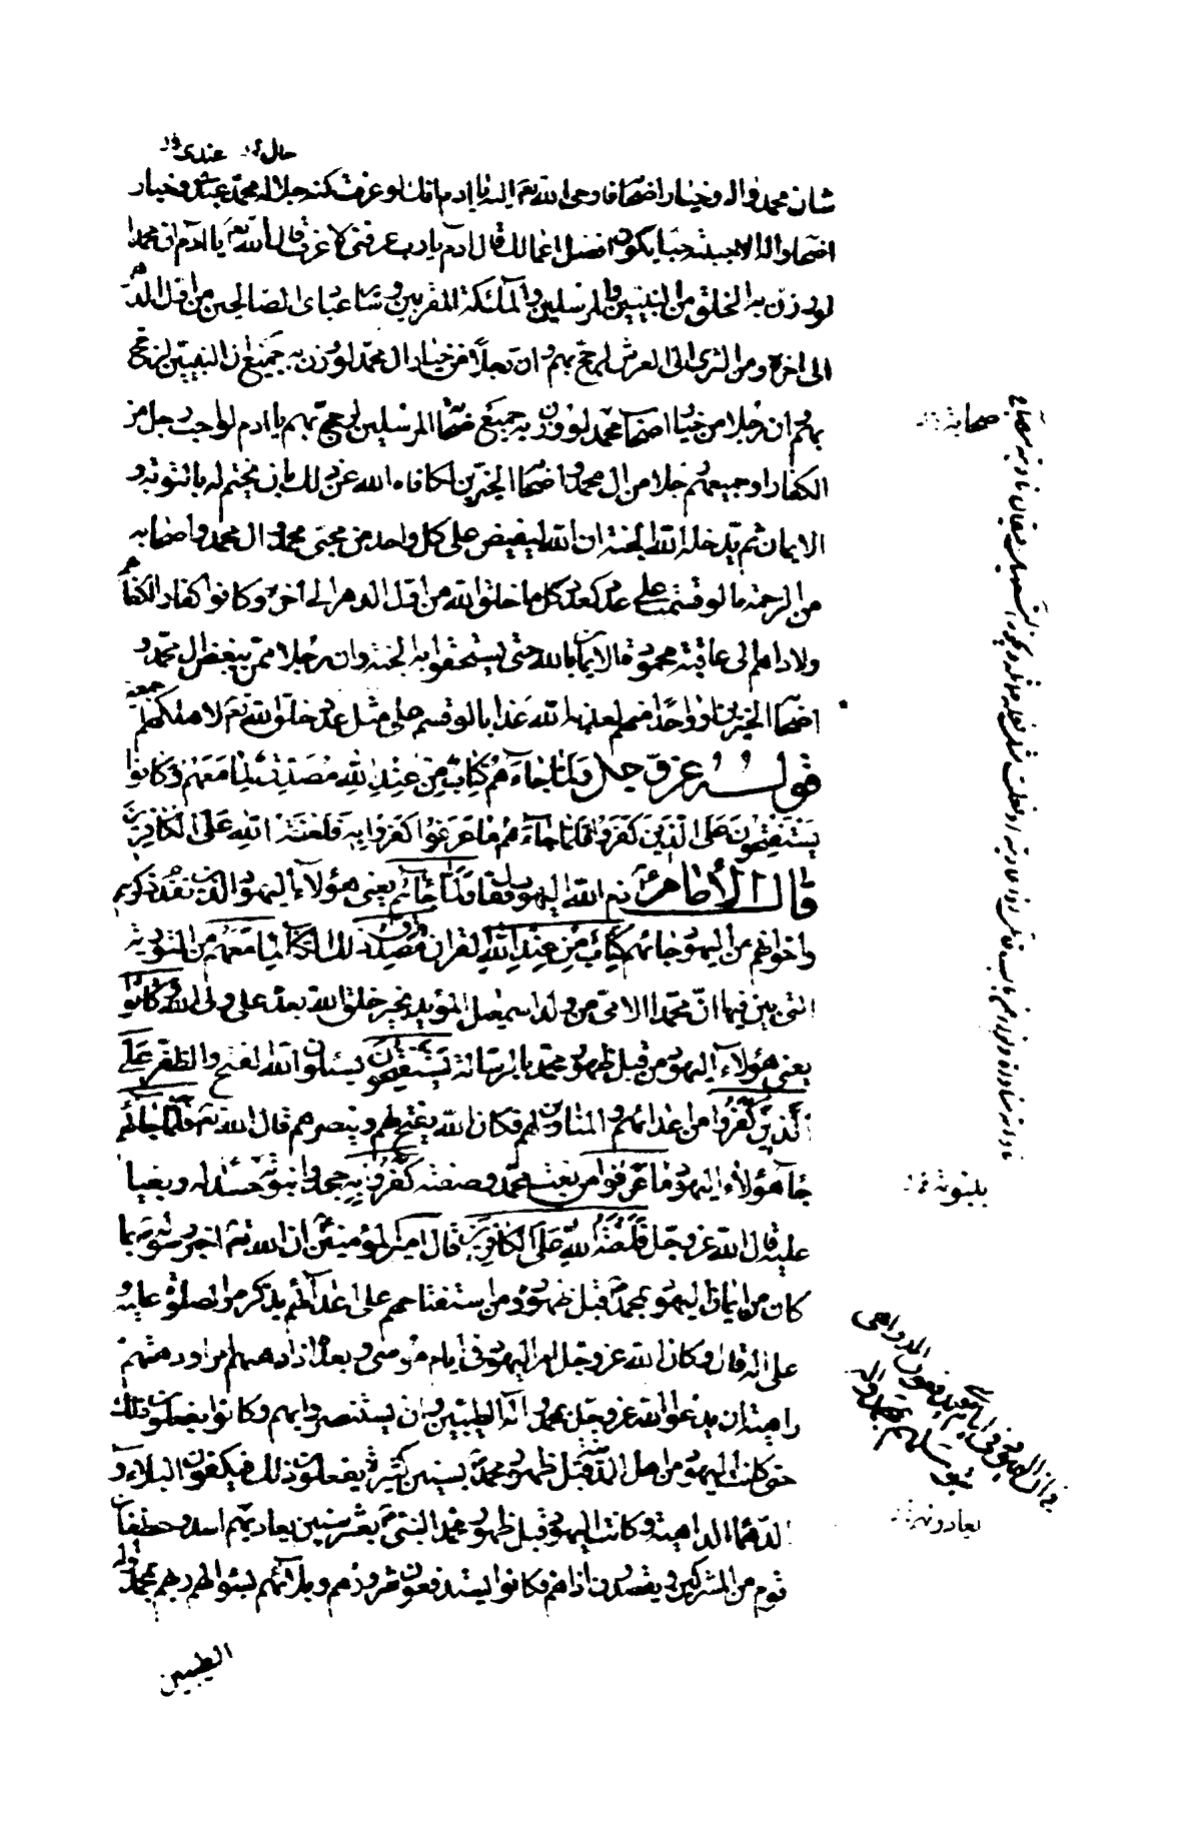 حال خ عندى خ
شان محمد واله وخيار اصحابه فاوحى الله تع اليه يا ادم انك لو عرفت كنه جلاله محمد عندى وخيار
اصحابه واله لاحببته حبا يكون افضل اعمالك قال ادم يا رب عرفنى لاعرف قال الله تع يا ادم ان محمدا
لو وزن به الخلق من النبيين والمرسلين والملئكة المقربين وسائر عبادى الصالحين من اول الدهر
الى اخره ومن الثرى الى العرش لرجح بهم وان رجلا من خيار ال محمد لو وزن به جميع ال النبيين لرجح
بهم وان رجلا من خيار اصحاب محمد لو وزن به جميع اصحاب المرسلين لرجح بهم يا ادم لو احب رجل من
الكفار او جميعهم رجلا من ال محمد واصحابه الخيرين لكافاه الله عن ذلك بان يختم له بالتوبة و
الايمان ثم يدخله الله الجنة ان الله ليفيض على كل واحد من محبى محمد وال محمد واصحابه
من الرحمة ما لو قسمت على عدد كعدد كل ما خلق الله من اول الدهر الى اخره وكانوا كفارا لكفاهم
ولاداهم الى عاقبة محمودة الايمان بالله حتى يستحقوا به الجنة وان رجلا ممن يبغض ال محمد و
اصحابه الخيرين او واحدا منهم لعذبه الله عذابا لو قسم على مثل عدد خلق الله تع لاهلكهم
جمعيه
قوله عز وجل ولما جاءهم كتاب من عند الله مصدق لما معهم وكانوا
يستفتحون على الذين كفروا فلما جاءهم ما عرفوا كفروا به فلعنة الله على الكافرين
قال الامام ذم الله اليهود فقال ولما جائهم يعنى هؤلاء اليهود الذين تقدم ذكرهم
واخوانهم من اليهود جائهم كتاب من عند الله القران مصدق ذلك الكتاب لما معهم من التورية
التى بين فيها ان محمدا الامى من ولد اسمعيل المؤيد بخير خلق الله بعده على ولى الله وكانوا
يعنى هؤلاء اليهود من قبل ظهور محمد بالرسالة يستفتحون يسئلون الله الفتح والظفر على
الذين كفروا من اعدائهم والمناوين لهم فكان الله يفتح لهم وينصرهم قال الله تع فلما جائهم
جاء هؤلاء اليهود ما عرفوا من نعت محمد وصفته كفروا به جحدوا نبوته حسدا له وبغيا
عليه قال الله عز وجل فلعنة الله على الكافرين قال امير المؤمنين ان الله تع اخبر رسوله بما
كان من ايمان اليهود بمحمد قبل ظهوره ومن استفتاحهم على اعدائهم بذكره والصلوة عليه و
على اله قال وكان الله عز وجل امر اليهود فى ايام موسى وبعده اذا دهمهم امر او دهمتهم
داهية ان يدعوا الله عز وجل بمحمد واله الطيبين وان يستنصروا بهم وكانوا يفعلون ذلك
حتى كانت اليهود من اهل المدينة قبل ظهور محمد بسنين كثيرة يفعلون ذلك فيكفون البلاء و
الدهماء الداهية وكانت اليهود قبل ظهور محمد النبى بعشر سنين يعاديهم اسد وغطفان
قوم من المشركين ويقصدون اذاهم فكانوا يستدفعون شرورهم وبلائهم بسئوالهم ربهم بمحمد واله
الطيبين
صحابة
بنبوته خ
يعادونهم